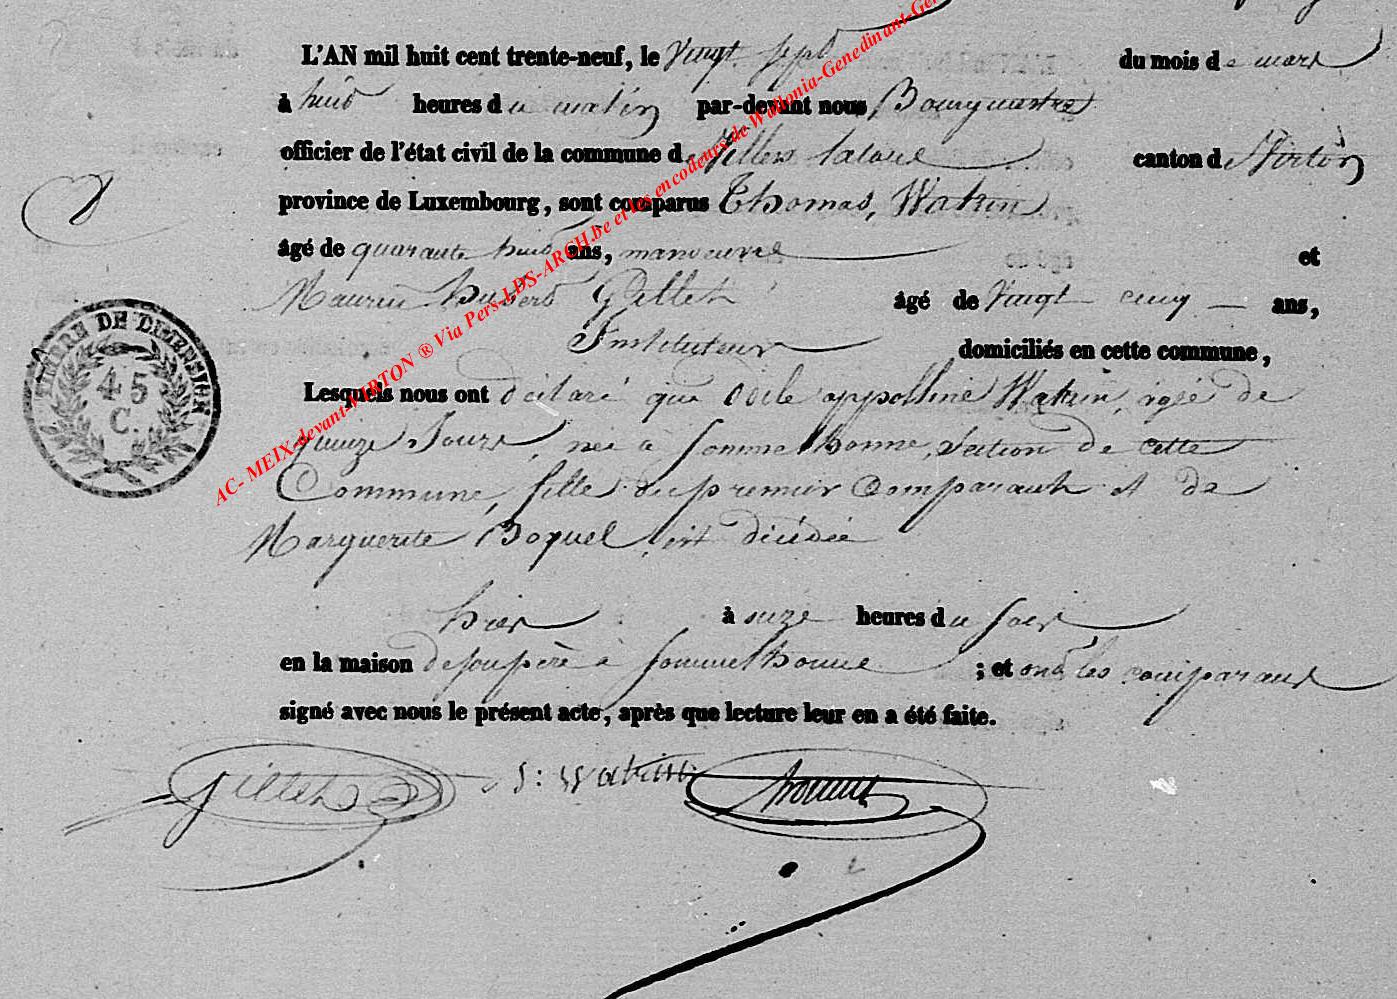 L'AN mil huit cent trente-neuf, le Vingt Sept du mois de mars
à huit heures du matin par-devant nous Bourguestre
officier de l'état civil de la commune de Villers laloue canton de Virton
province de Luxembourg, sont comparus Thomas, Watrin
âgé de quarante huit ans, manoeuvre et
Maurice hubert Gillet âgé de Vingt cinq ans,
Instituteur domiciliés en cette commune,
Lesquels nous ont déclaré que Odile appolline Watrin, agé de
quinze Jours, née a Sommethonne, Section de cette
Commune, fille du premier Comparant et de
Marguerite Boquel, est décédée
hier à onze heures du soir
en la maison de son père à Sommethonne ; et ont les comparans
signé avec nous le présent acte, après que lecture leur en a été faite.
Gillet Watrin
TIMBRE DE DIMENSION
45
C.
AC- MEIX-devant-VIRTON ® Via Pers-LDS-ARCH.be et les encodeurs de Wallonia-Genedinant-Gene